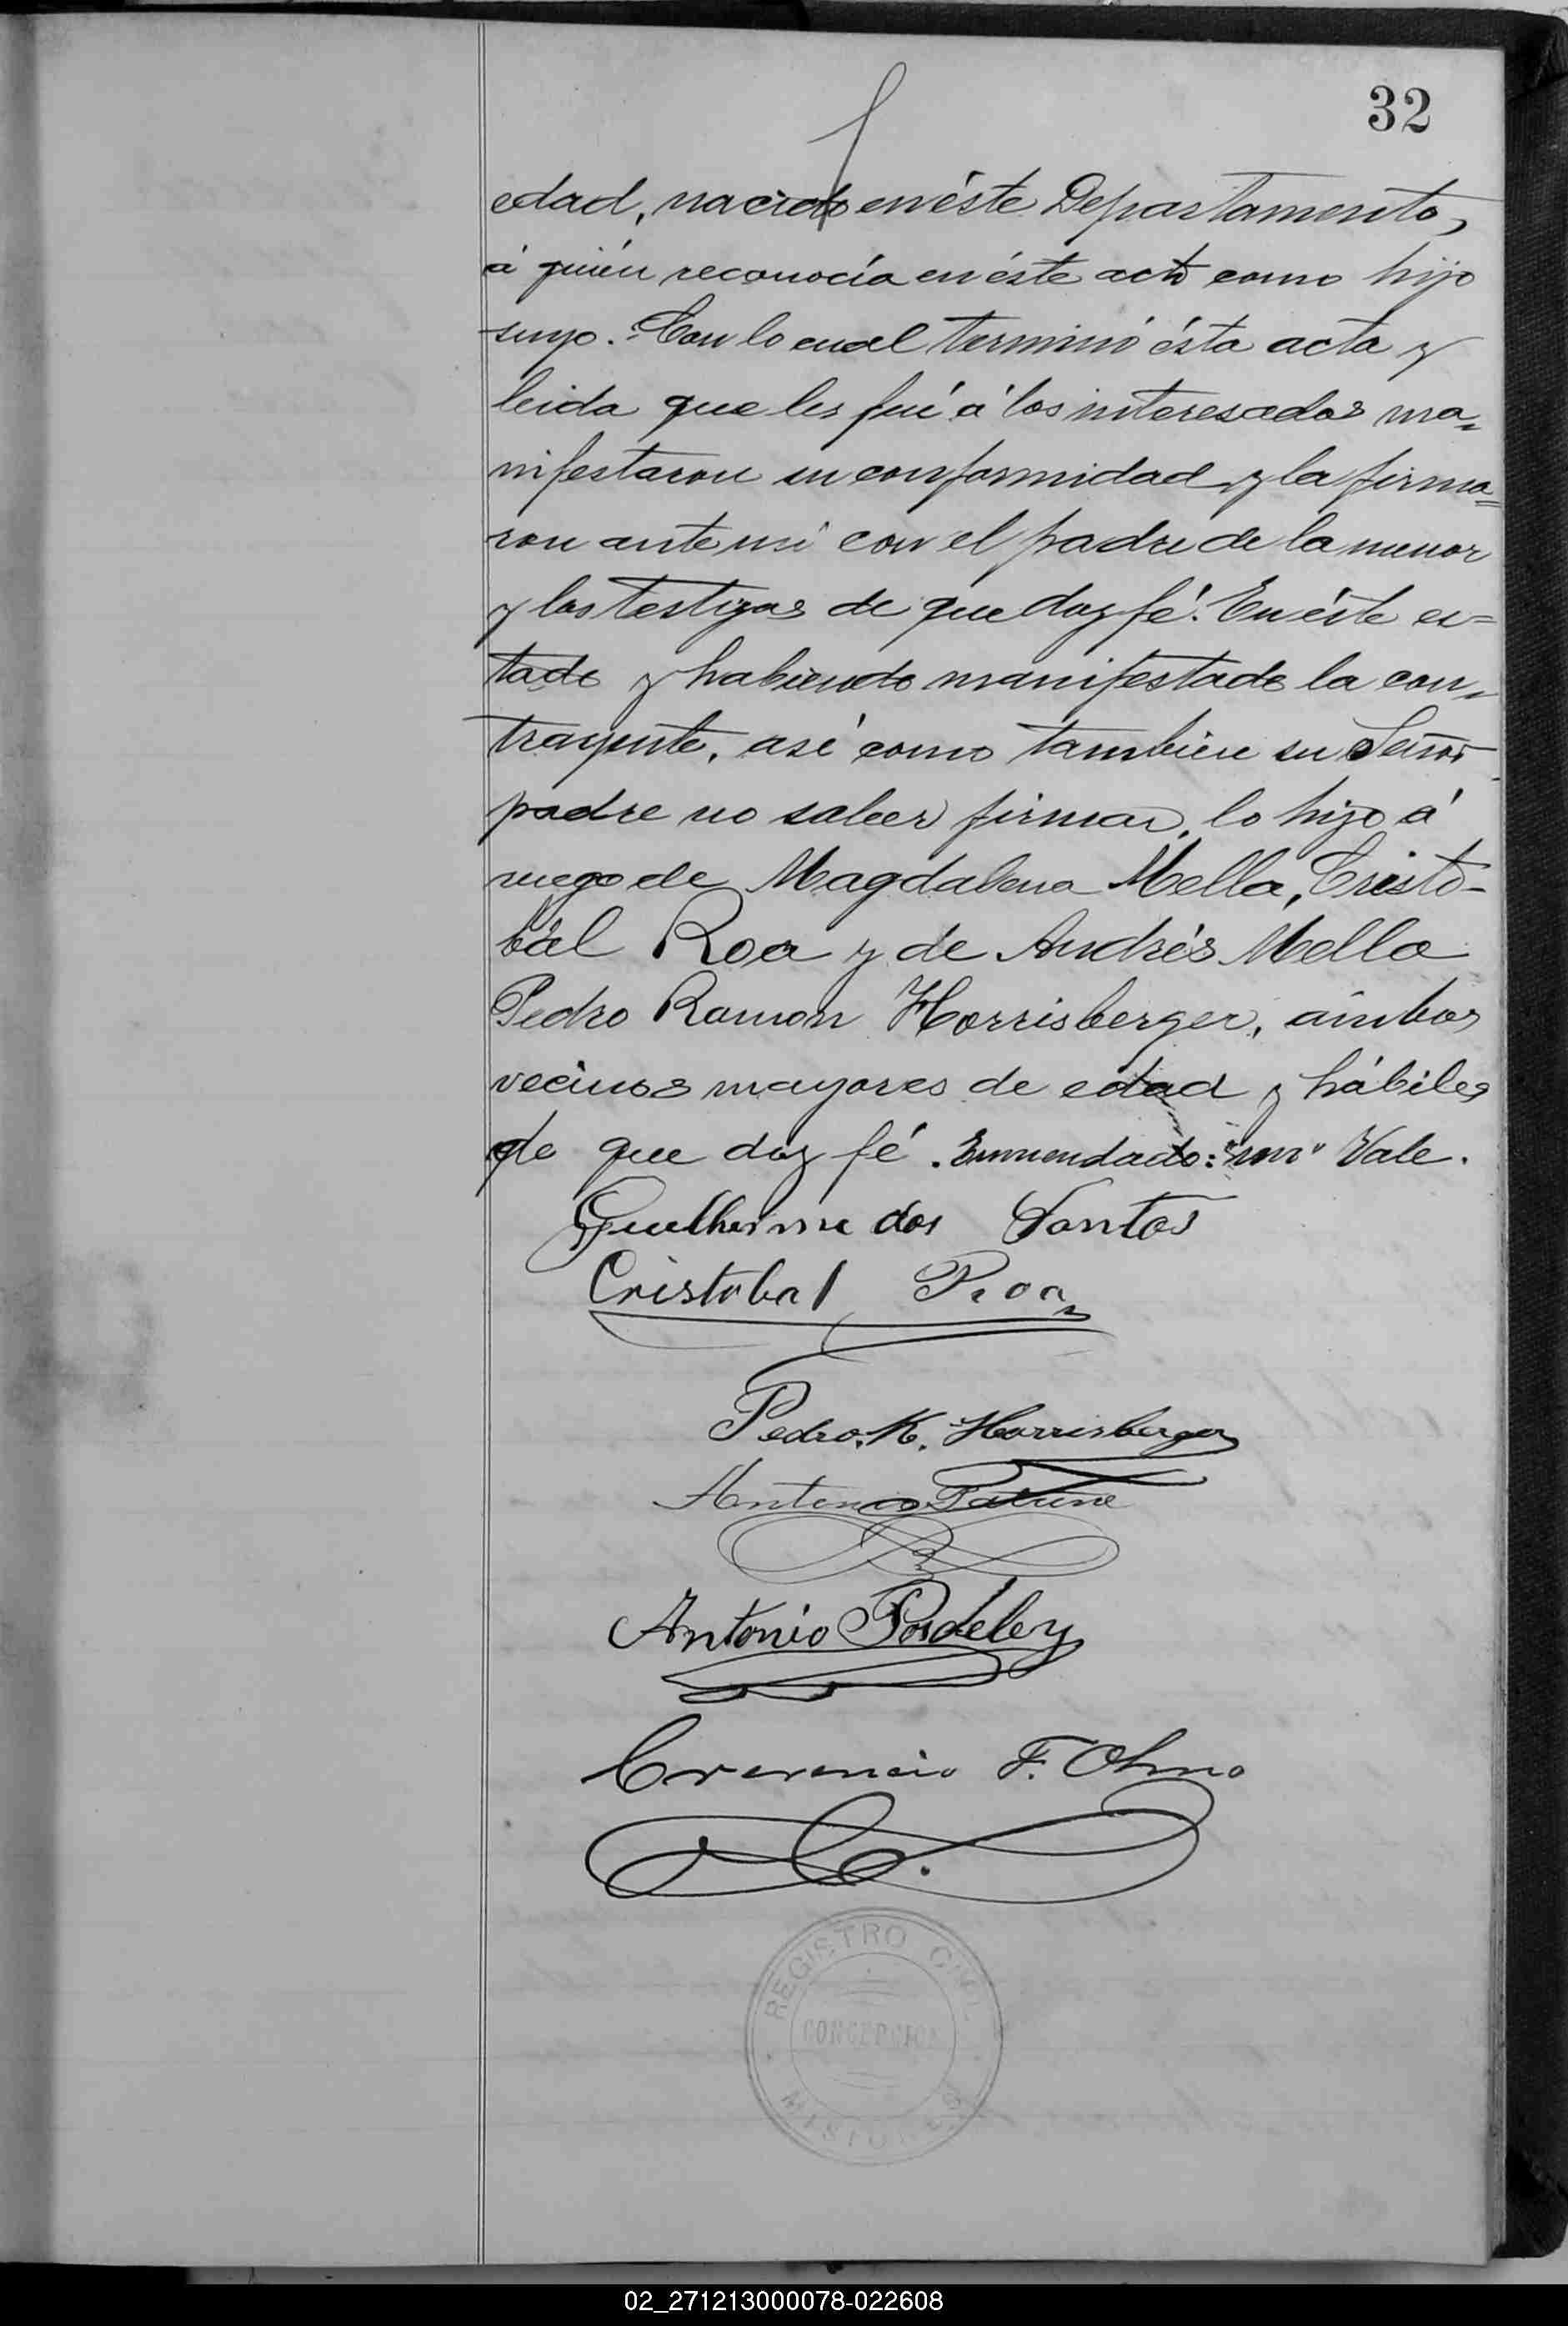 32
edad, nacido en éste Departamento,
á quién reconocía en éste acto como hijo
suyo. Con lo cual terminó ésta acta y
leida que les fué á los interesados ma=
nifestaron su conformidad y la firma=
ron ante mi con el padre de la menor
y los testigos de que doy fé. En éste es=
tado y habiendo manifestado la con=
trayente, asi como tambien su Señor
padre no saber firmar, lo hizo á
ruego de Magdalena Mella, Cristo-
bal Roa y de Andrés Mella
Pedro Ramon Horrisberger, ámbos
vecinos mayores de edad y hábiles
de que doy fé. Enmendado: Vale.
Guilherme dos Santos
Cristobal Roa
Pedro. R. Horrisberger
Antonio
Antonio
F. Olmo
REGISTRO CIVIL
CONCEPCION
MISIONES
02_271213000078-022608